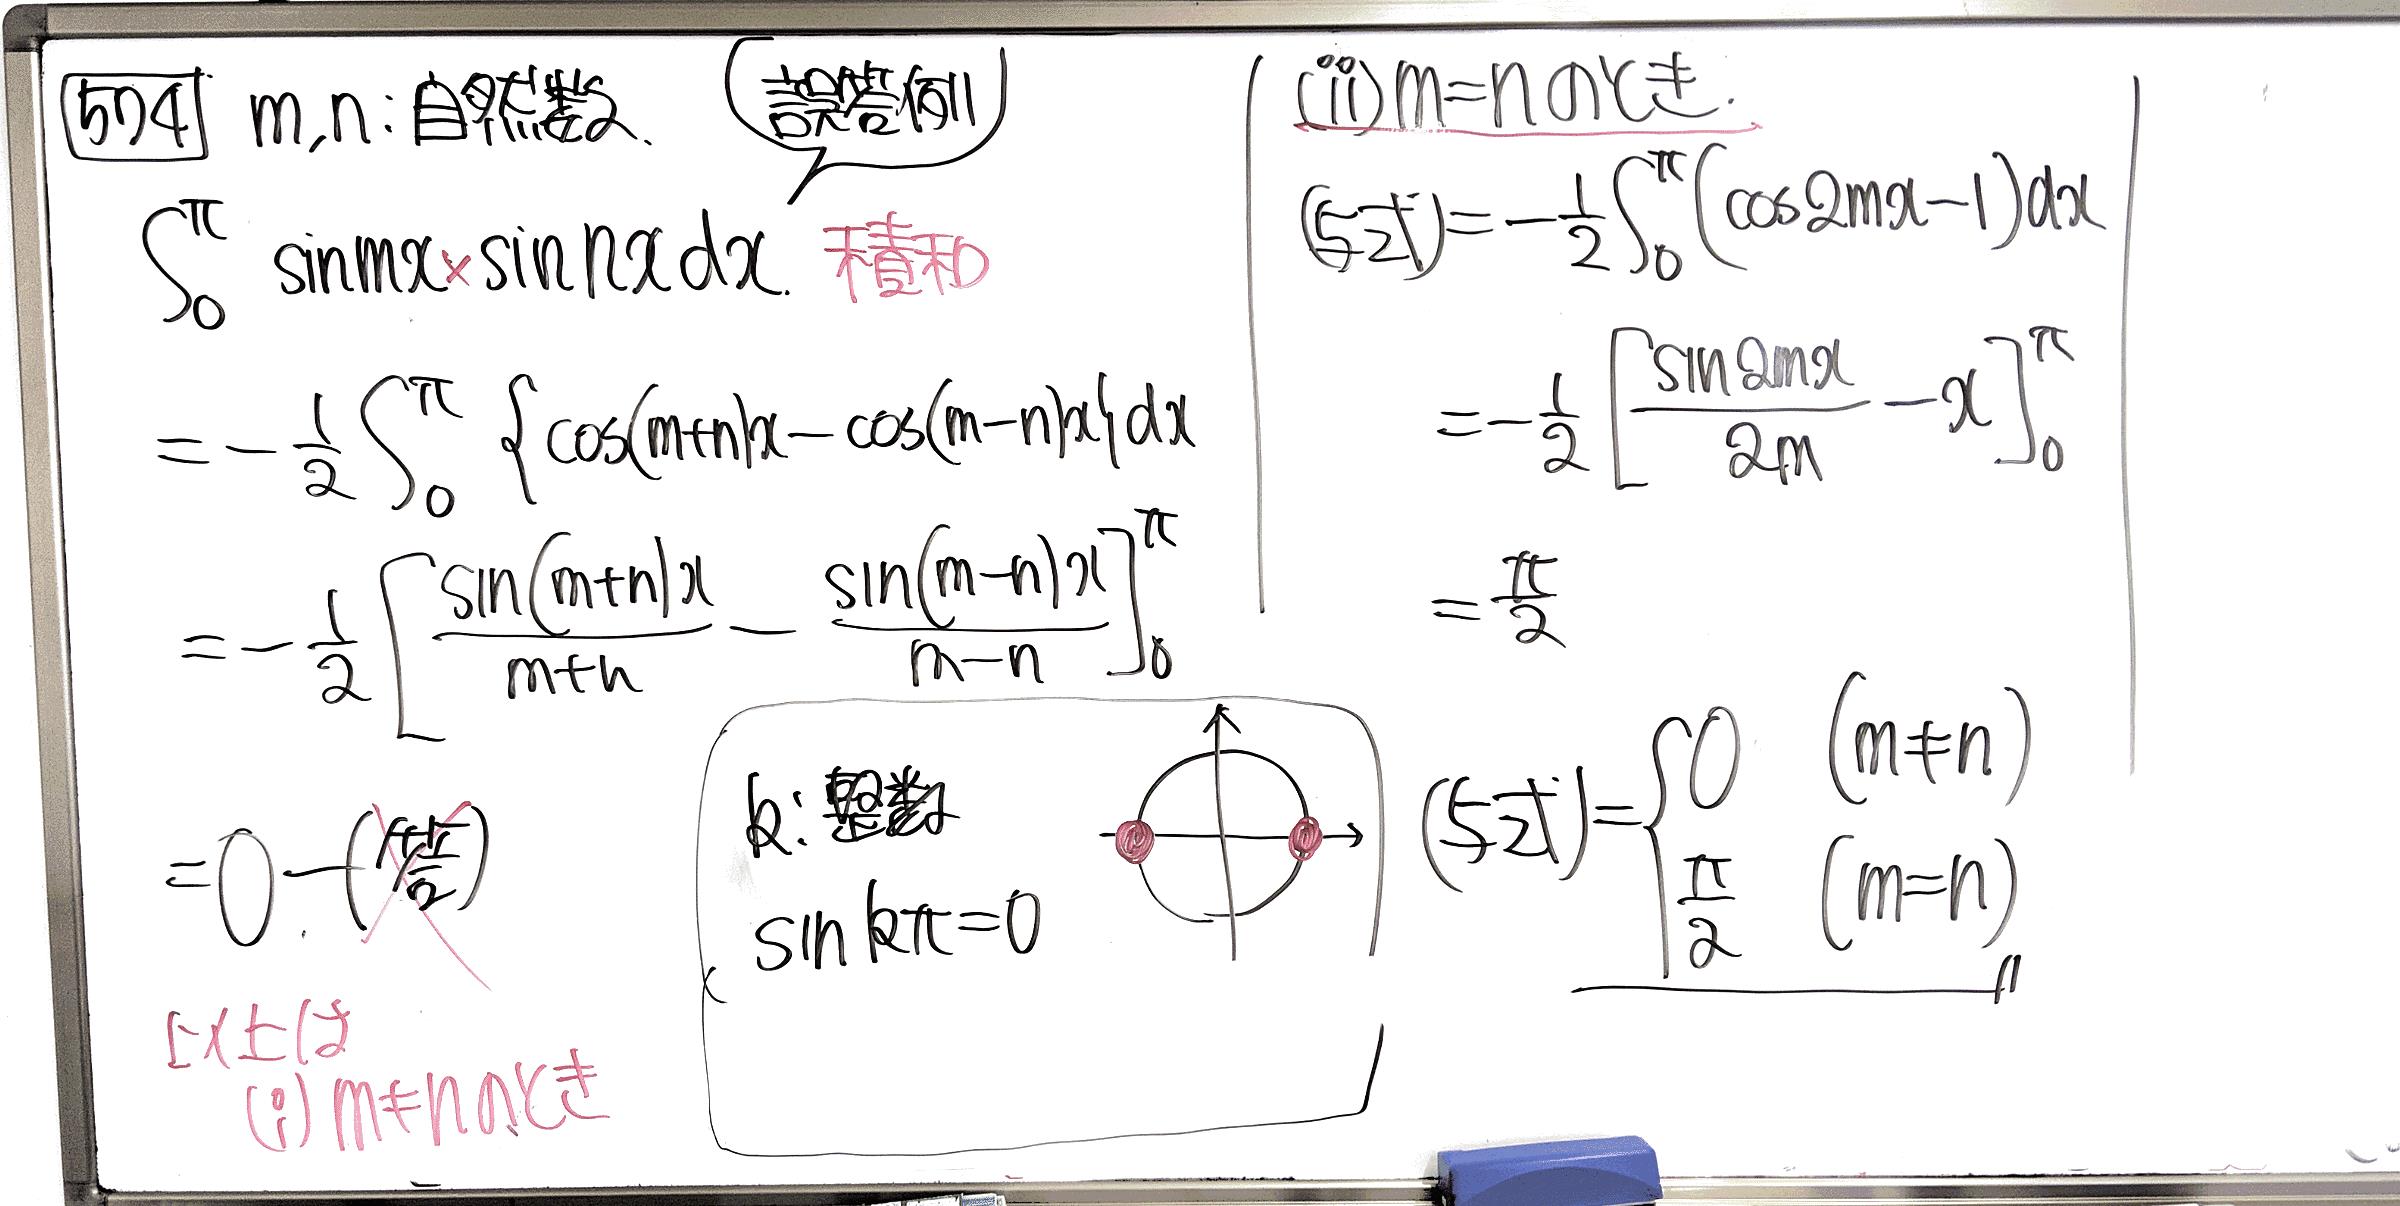 574 m,n:自然数. 誤答例
∫₀^π sinmx×sinnxdx. 積和
=-1/2∫₀^π{cos(m+n)x-cos(m-n)x}dx
=-1/2[sin(m+n)x/m+n - sin(m-n)x/m-n]₀^π
=0-(答)
以上は
(i)m≠nのとき
k:整数
sinkπ=0
(ii)m=nのとき.
(与式)=-1/2∫₀^π(cos2mx-1)dx
=-1/2[sin2mx/2m-x]₀^π
=π/2
(与式)={0 (m≠n)
π/2 (m=n)